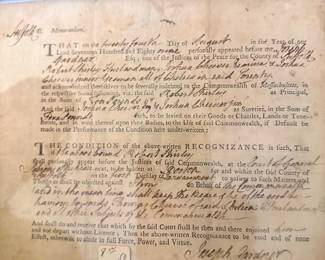 Suffolk ss. Memorandum,
THAT on the twenty fourth Day of August in the Year of our
Lord Seventeen Hundred and Eighty nine personally appeared before me Joseph
Gardner Esq; one of the Justices of the Peace for the County of Suffolk
Robert Shirley Husbandman, Joshua Cheever and Joshua
Cheever all of Chelsea in said County
and acknowledged themselves to be severally indebted to the Commonwealth of Massachusetts, in
the respective Sums following, viz. the said Robert Shirley as Principal,
in the Sum of Ten Pounds
And the said Joshua Cheever & Joshua Cheever as Sureties, in the Sum of
Five Pounds each, to be levied on their Goods or Chattels, Lands or Tene-
ments, and in want thereof upon their Bodies, to the Use of the said Commonwealth, if Default be
made in the Performance of the Condition here under-written;
THE CONDITION of the above-written RECOGNIZANCE is such, That
if the above bound Robert Shirley
shall personally appear before the Justices of said Commonwealth, at the Court of General
Sessions of the Peace next, to be holden at Boston for and within the said County of
on the first Day to answer to such Matters and
Things as shall be objected against him on Behalf of the Commonwealth
and in the mean time shall keep the Peace & be of the good be-
haviour towards Thomas
and all other Subjects of the Commonwealth
And shall do and receive that which by the said Court shall be then and there enjoined him
and not depart without Licence; Then the above-written Recognizance to be void and of none
Effect, otherwise to abide in full Force, Power, and Virtue.
Joseph Gardner